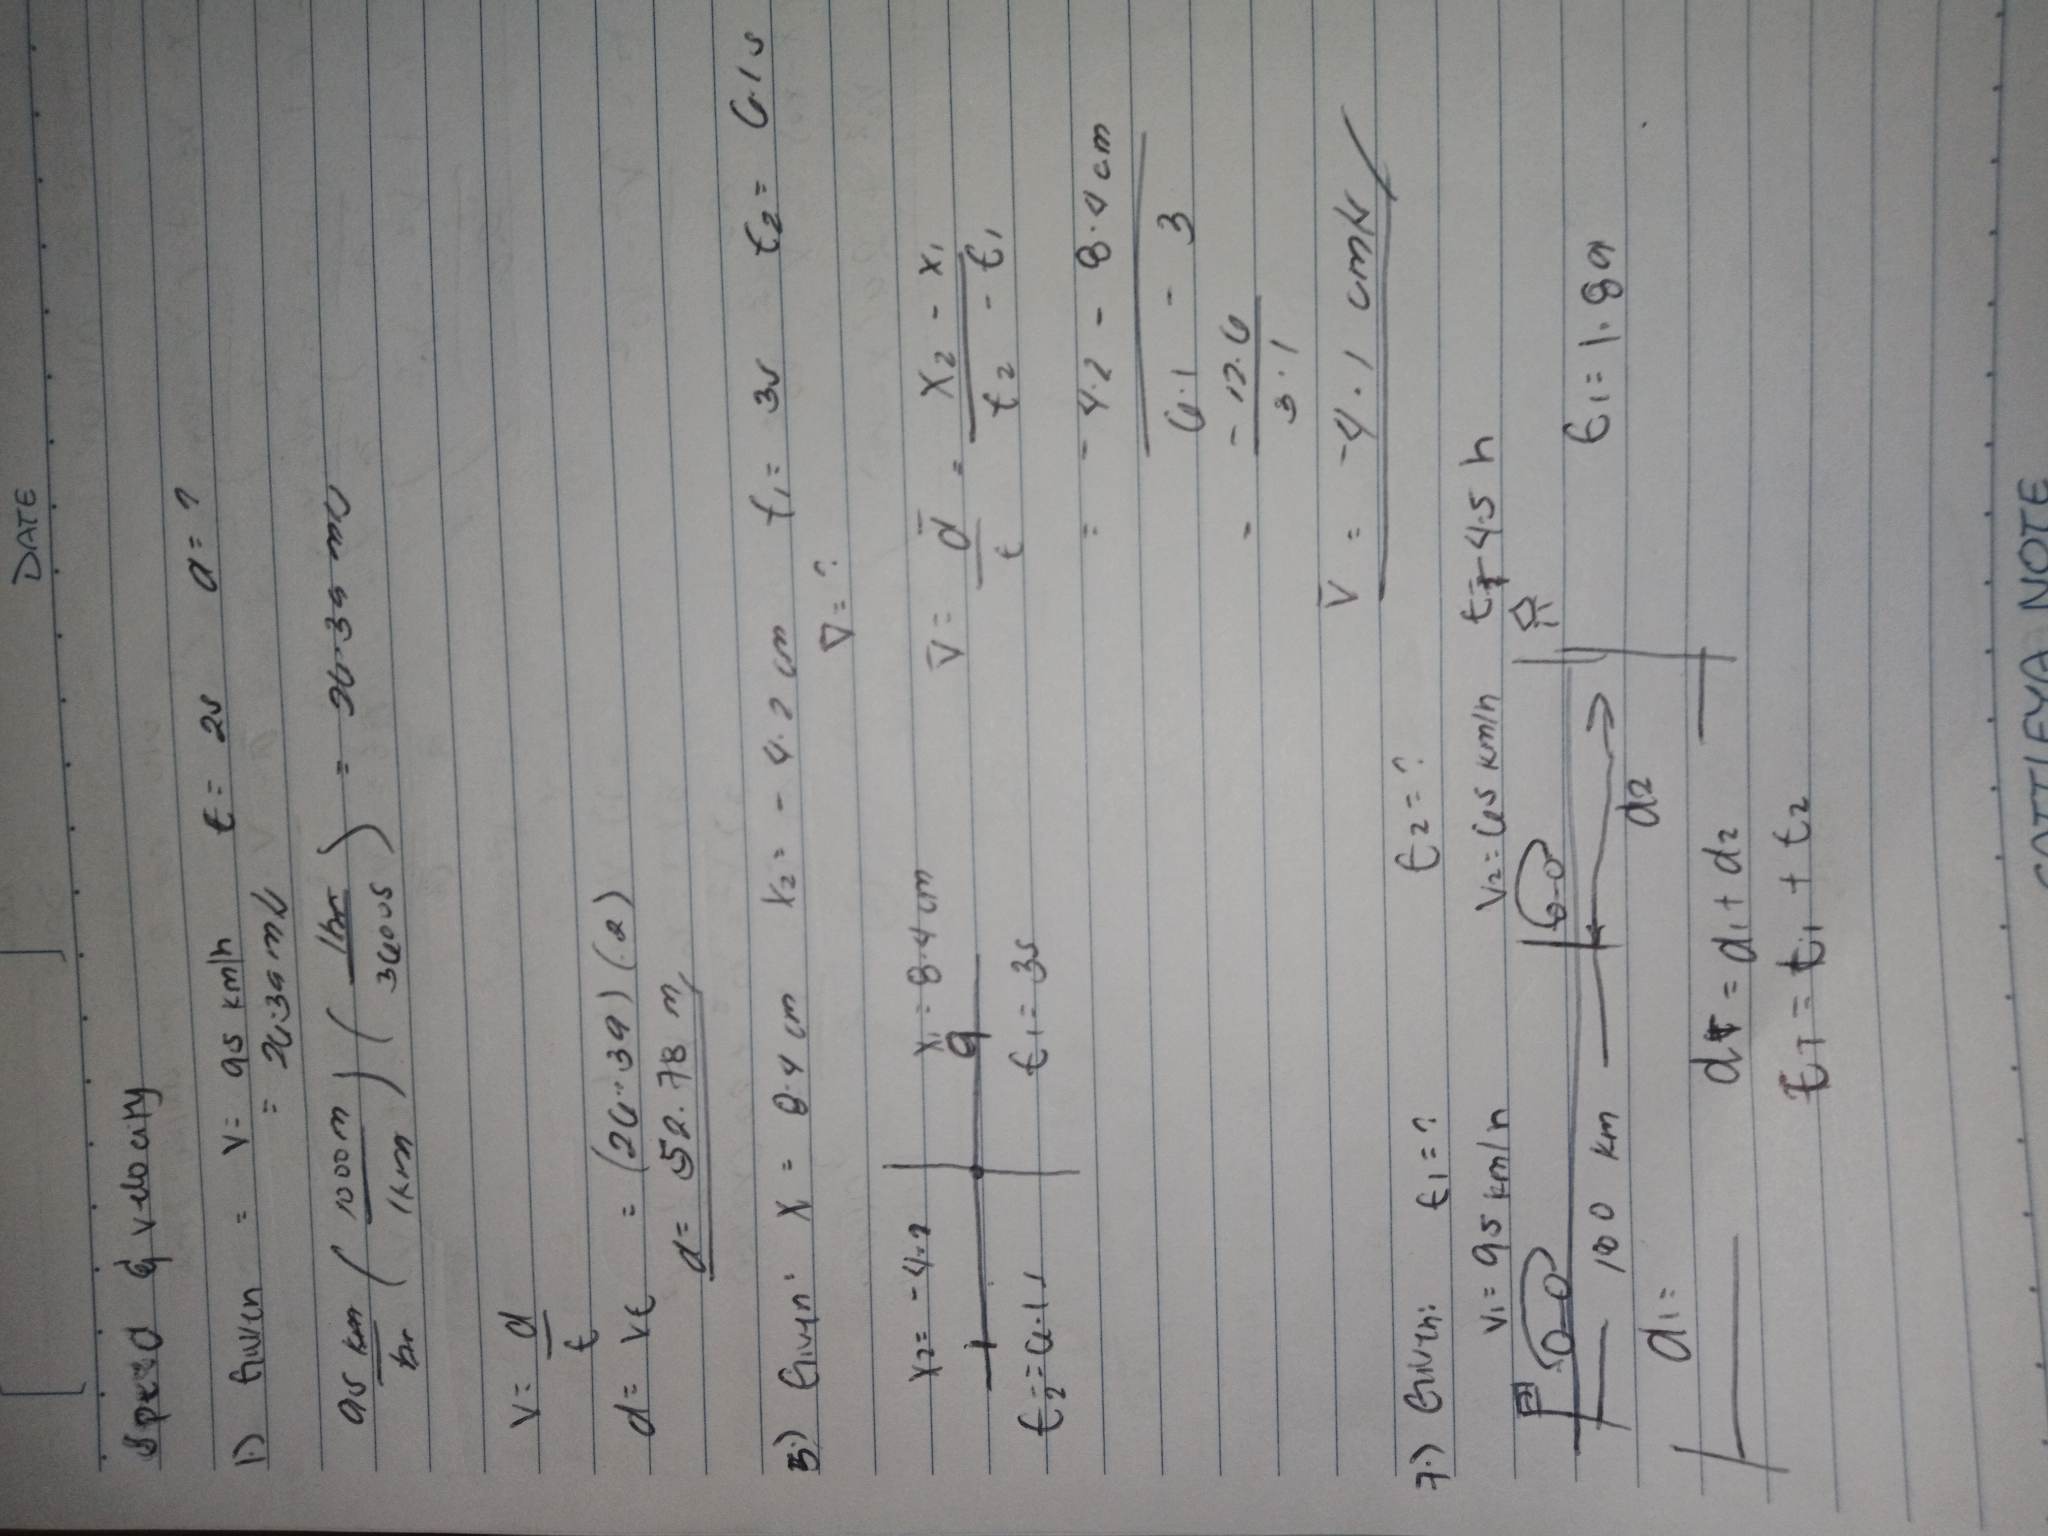 DATE
Speed & velocity
1.) Given = V= 95 km/h t= 2s d= ?
= 26.39 m/s
95 km/hr (1000m/1km) (1hr/3600s) = 26.39 m/s
V= d/t
d= vt = (26.39)(2)
d= 52.78 m
5.) Given: X₁ = 8.4 cm X₂= -4.2 cm t₁= 3s t₂= 6.1s
V̅=?
X₂= -4.2 X₁= 8.4cm V̅= d/t = X₂ - X₁ / t₂ - t₁
t₂= 6.1s t₁= 3s
= -4.2 - 8.4 cm / 6.1 - 3
= -12.6 / 3.1
V̅ = -4.1 cm/s
7.) Given: t₁=? t₂=?
V₁= 95 km/h V₂= 65 km/h t= 4.5 h
180 km
d₁= d₂ t₁= 1.89
dT = d₁ + d₂
tT = t₁ + t₂
CATTLEYA NOTE